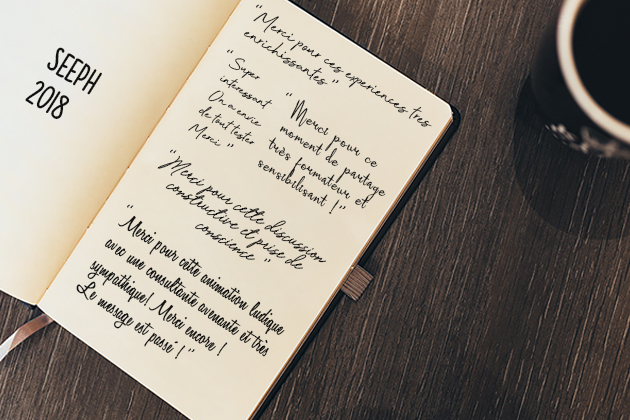 SEEPH
2018
"Merci pour ces experiences tres
enrichissantes "
" Super
interessant
On a envie
de tout tester
Merci "
" Merci pour ce
moment de partage
très formateur et
sensibilisant ! "
"Merci pour cette discussion
constructive et prise de
conscience "
"
Merci pour cette animation ludique
avec une consultante avenante et très
sympathique! Merci encore !
Le message est passé ! "